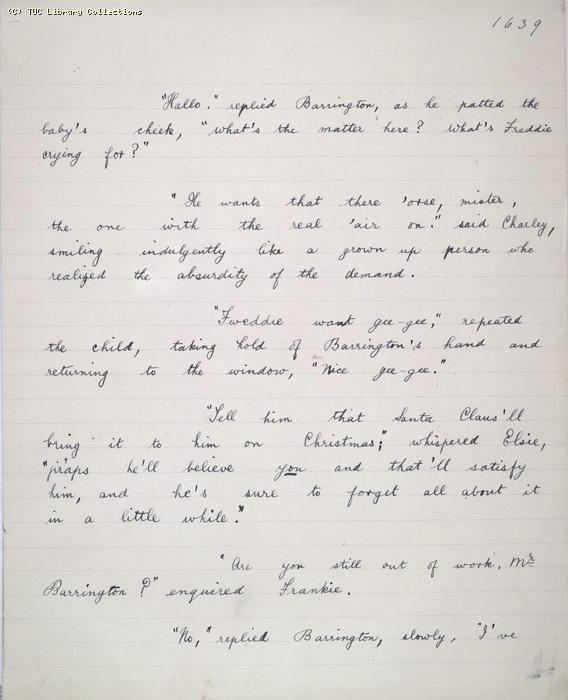 (C) TUC Library Collections
1639
"Hallo." replied Barrington, as he patted the
baby's cheek, "what's the matter here? what's Freddie
crying for?"
"He wants that there 'orse, mister,
the one with the real 'air on." said Charley,
smiling indulgently like a grown up person who
realised the absurdity of the demand.
"Fweddie want gee-gee," repeated
the child, taking hold of Barrington's hand and
returning to the window, "Nice gee-gee."
"Tell him that Santa Claus'll
bring it to him on Christmas;" whispered Elsie,
"p'raps he'll believe you and that'll satisfy
him, and he's sure to forget all about it
in a little while."
"Are you still out of work, Mr
Barrington?" enquired Frankie.
"No," replied Barrington, slowly, "I've